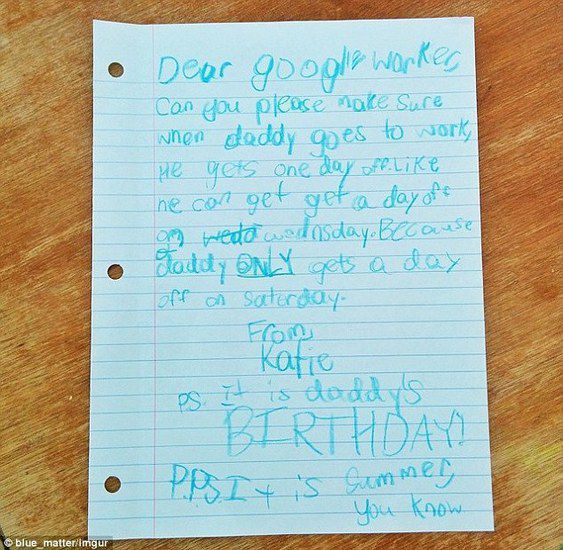 Dear google worker,
Can you please make sure
when daddy goes to work,
He gets one day off. Like
he can get get a day off
on wedd wednsday. Because
daddy ONLY gets a day
off on saterday.
From,
Katie
P.S. It is daddy's
BIRTHDAY!
P.P.S. It is summer,
you know
© blue_matter/imgur